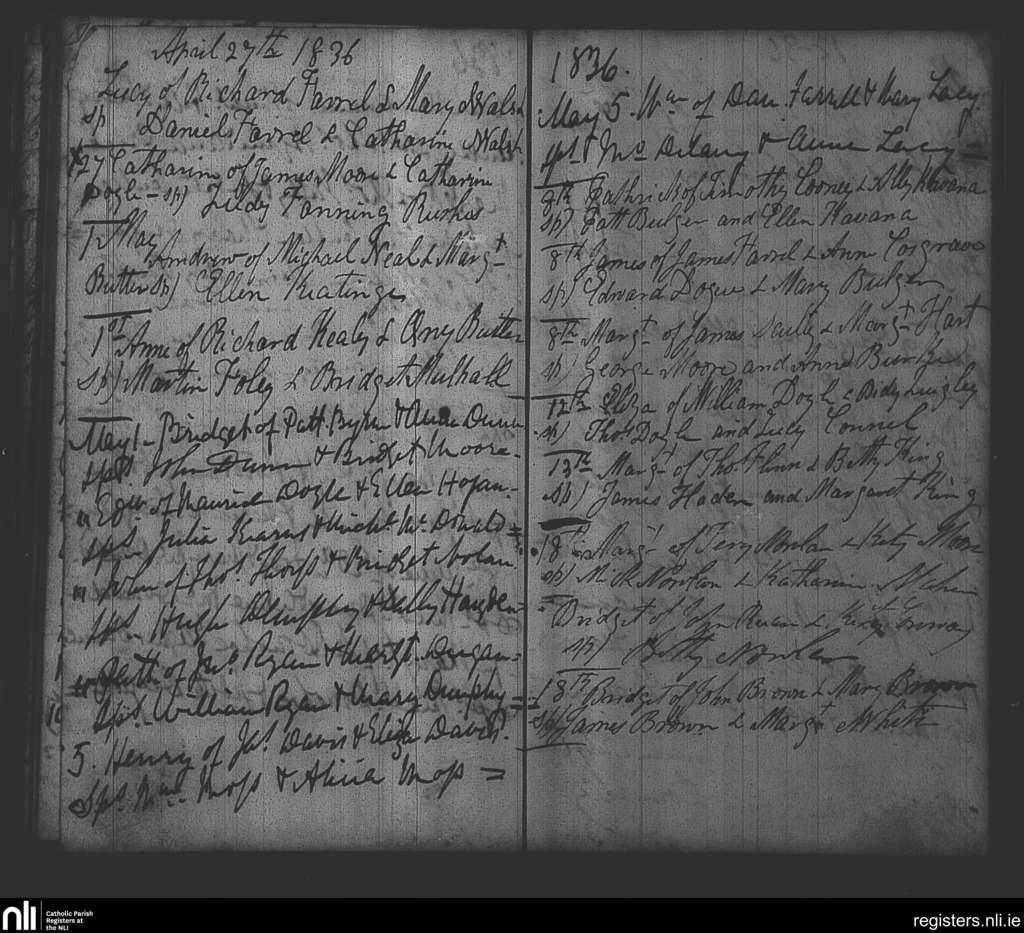 April 27th 1836
Lucy of Richard Farrel & Mary Walsh
sp Daniel Farrel & Catharine Walsh
27 Catharine of James Moore & Catharine
Dogle - sp) Judy Fanning
1 May Andrew of Michael Neal & Margt
Butler sp) Ellen Keatinge
1st Anne of Richard Healy & Butler
sp) Martin Foley & Bridget Mulhall
May 1 - Bridget of Patt. Byrn & Anne Dunn
Sps. John Dunn & Bridget Moore -
" Edw. of Maurice Dogle & Ellen Hogan -
sps. Julia Kearns & Mc Donald =
" John of Thos. Thorp & Bridget Nolan
sps. Hugh Dumphy & Hayden -
" Patt of Jno. Ryan & Margt. Dugan -
Sps. William Ryan & Mary Dumphy =
5. Henry of Js. Davis & Eliza Davis.
Sps. Wm. Moss & Alicia Moss =
1836.
May 5. Wm of Dan. Farrell & Mary Lacy
sps Delany & Anne Lacy =
7th of Timothy Cooney & Ally Kavana
sp) Patt Bulger and Ellen Kavana
8th James of James Farrel & Anne Cosgrave
sp) Edward Dogle & Mary Bulger
8th Margt of James Scully & Margt Hart
sp) George Moore and Anne Burke
12th Eliza of William Dogle & Bidy Quigley
sp) Thos Dogle and Judy Connel
13th Margt of Thos Flinn & Betty King
sp) James Haden and Margaret King
18 Margt of Tery Nowlan & Kity Moore
sp) Mick Nowlan & Katharine Maher
Bridget of John Ruan & Kity
sp) Betty Nowlan
18th Bridget of John Brown & Mary Brown
sp) James Brown & Margt White
nli
Catholic Parish
Registers at
the NLI
registers.nli.ie